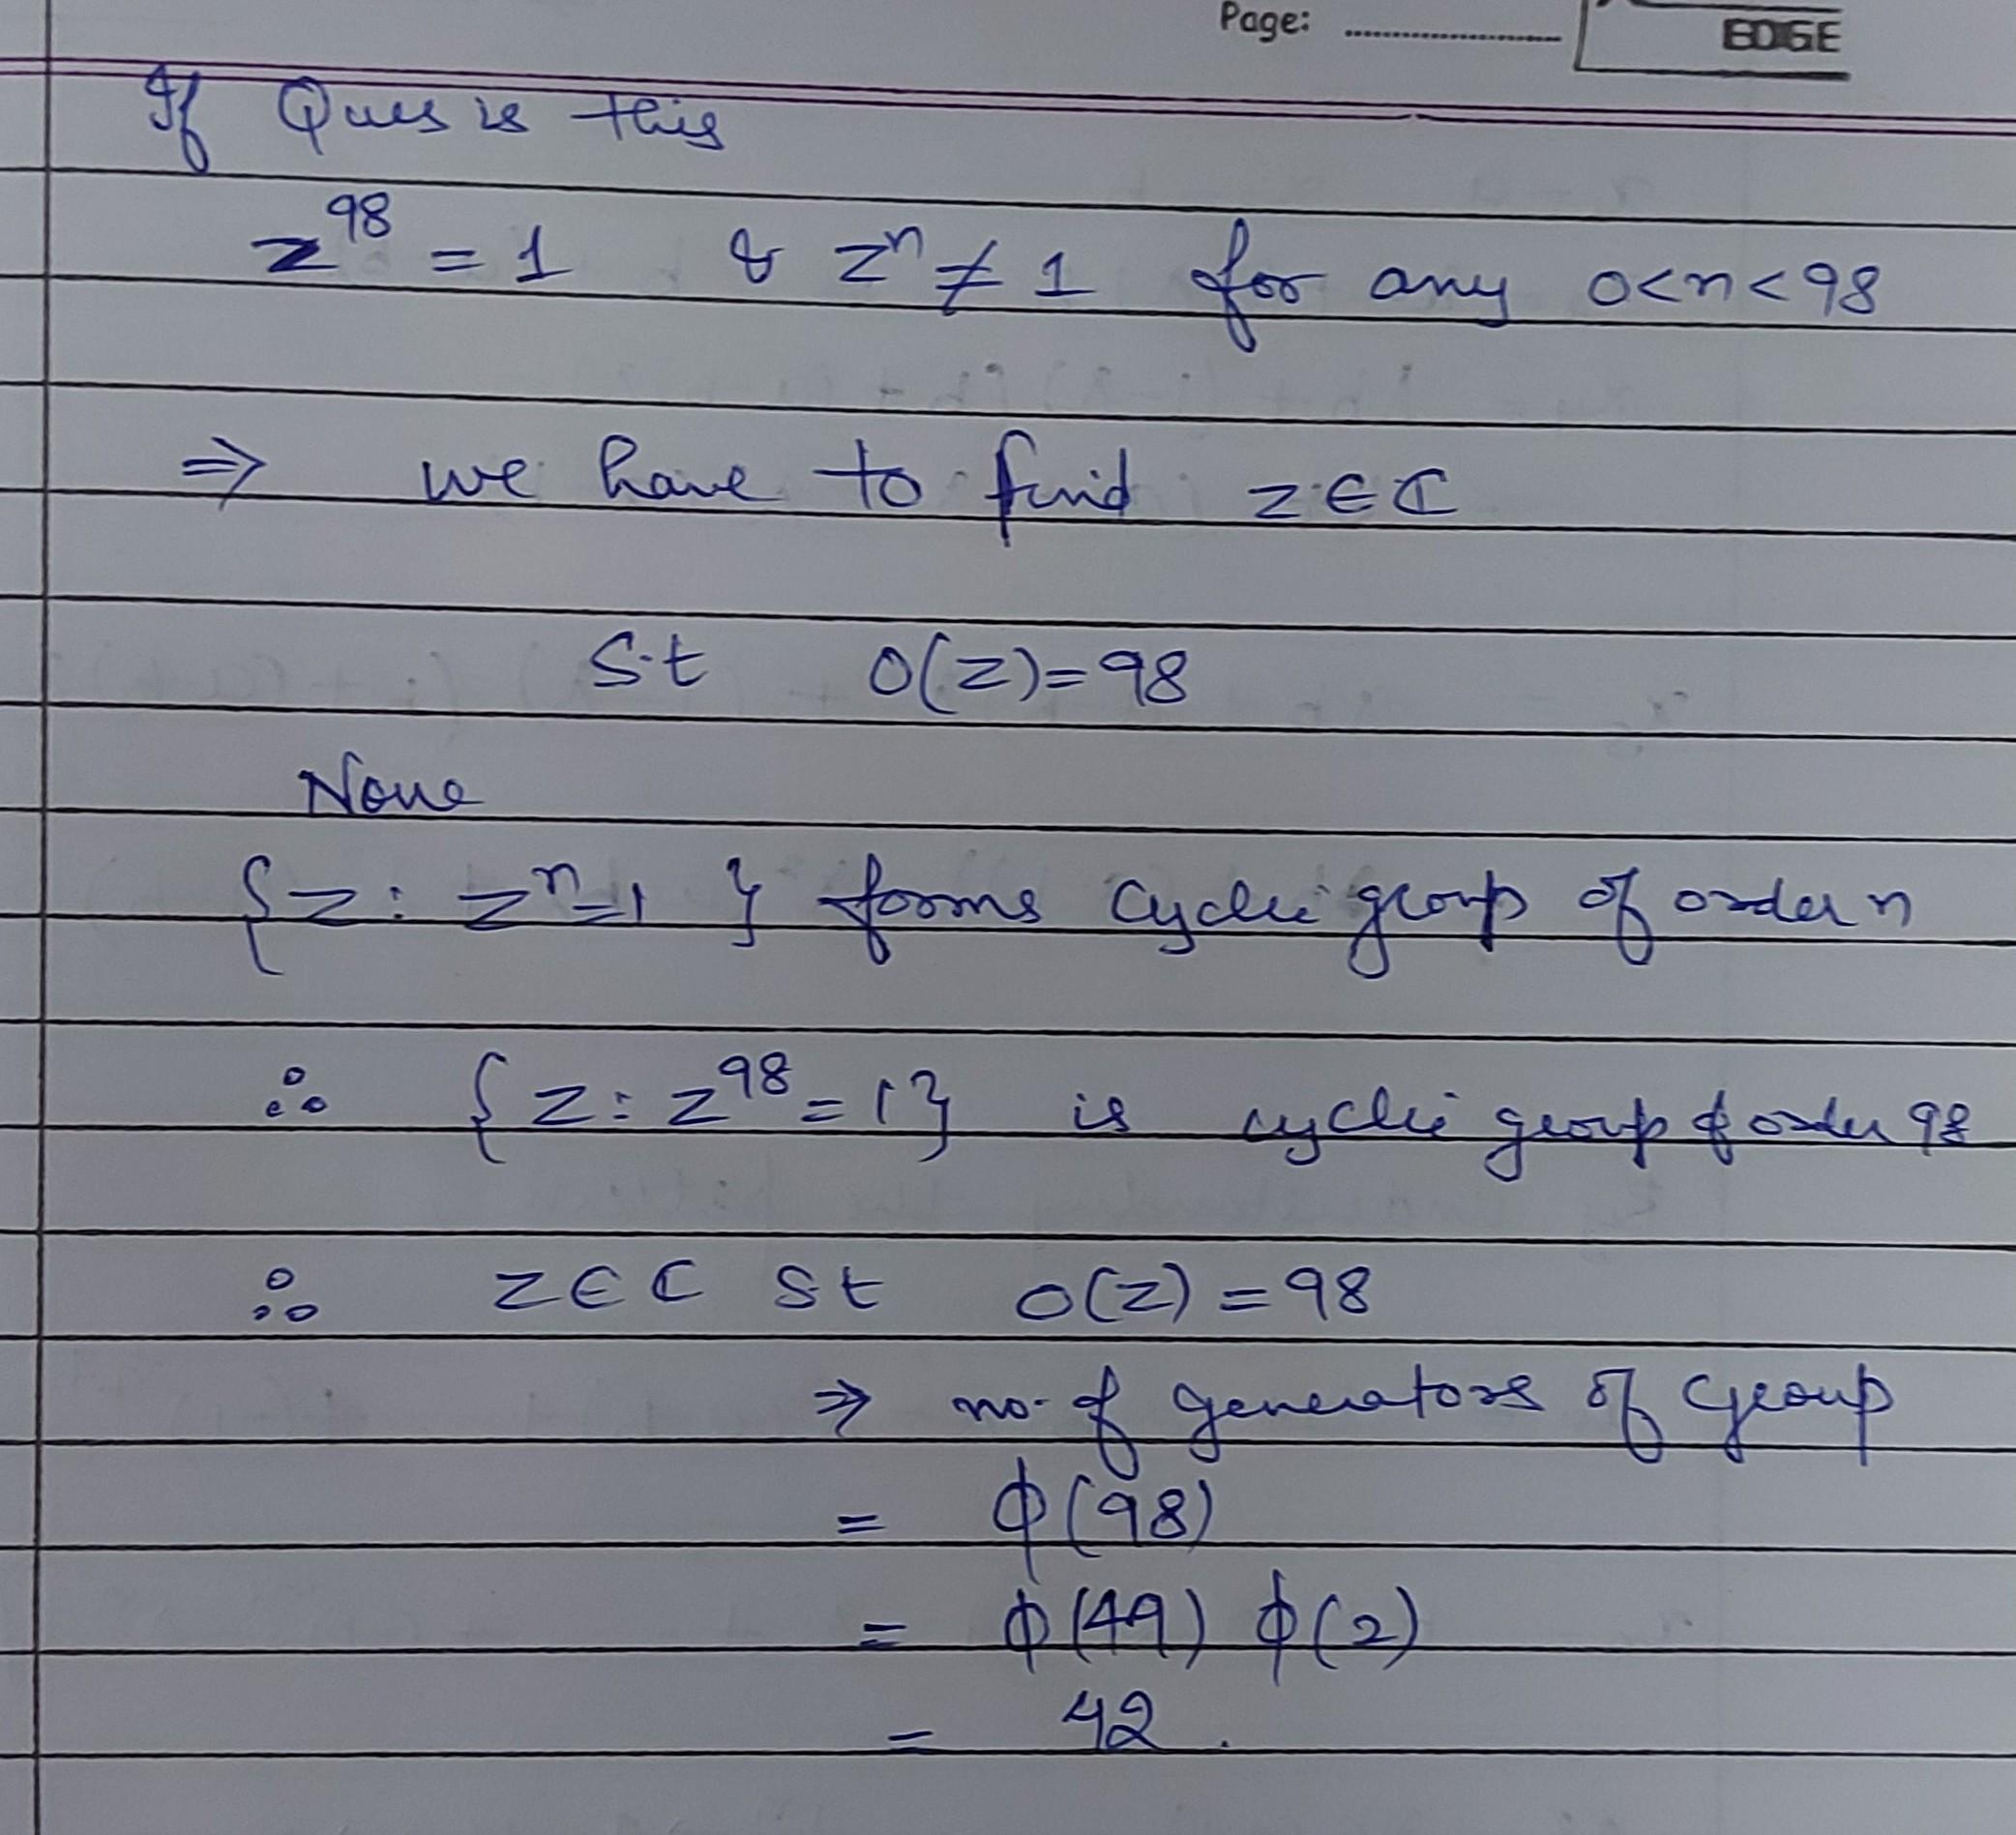 Page: ..............
EDGE
If Ques is this
z^98 = 1 & z^n ≠ 1 for any 0<n<98
⇒ we have to find z∈ℂ
S.t O(z)=98
None
{z: z^n=1} forms cyclic group of order n
∴ {z: z^98=1} is cyclic group of order 98
∴ z∈ℂ St O(z)=98
⇒ no. of generators of group
= ϕ(98)
= ϕ(49) ϕ(2)
= 42.